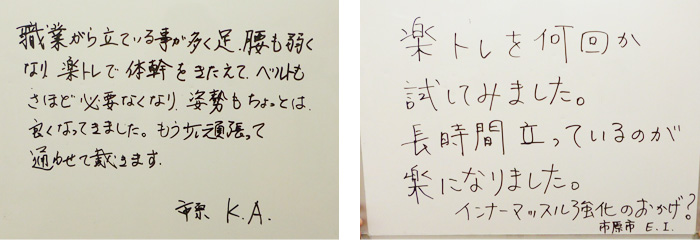 職業がら立ている事が多く足、腰も弱く
なり楽トレで体幹をきたえて、ベルトも
さほど必要なくなり、姿勢もちょっとは、
良くなってきました。もう少し頑張って
通わせて戴きます。
市原 K.A.
楽トレを何回か
試してみました。
長時間立っているのが
楽になりました。
インナーマッスル強化のおかげ?
市原市 E.I.